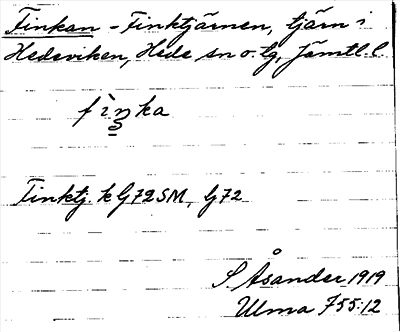 Finkan - Finktjärnen, tjärn i
Hedeviken, Hede sn o. tg, Jämtl. l.
fìŋka
Finktj. k G72SM, G72
S. Åsander 1919
Ulma 755:12